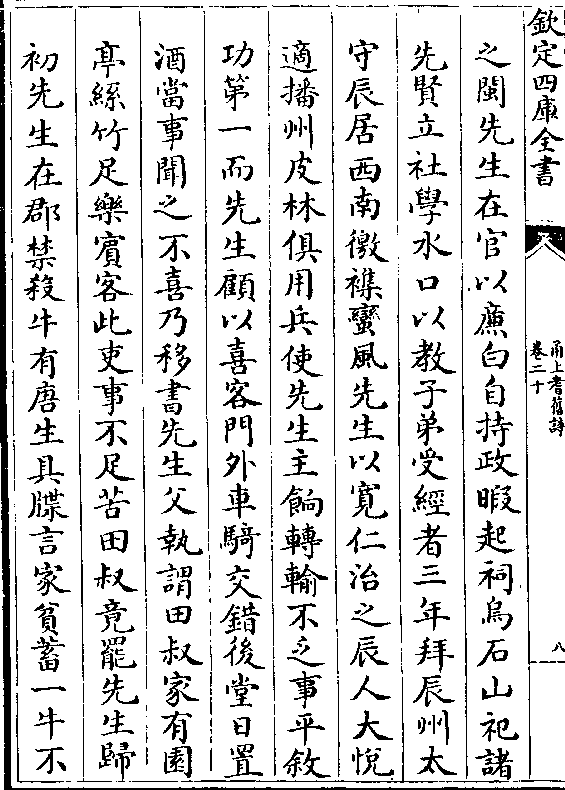 欽定四庫全書
甬上耆舊詩
卷二十
八
之閩先生在官以㢘白自持政暇起祠烏石山祀諸
先賢立社學水口以教子弟受經者三年拜辰州太
守辰居西南徼襍蠻風先生以寛仁治之辰人大悅
適播州皮林俱用兵使先生主餉轉輸不乏事平敘
功第一而先生顧以喜客門外車騎交錯後堂日置
酒當事聞之不喜乃移書先生父執謂田叔家有園
亭絲竹足樂賓客此吏事不足苦田叔竟罷先生歸
初先生在郡禁殺牛有唐生具牒言家貧蓄一牛不